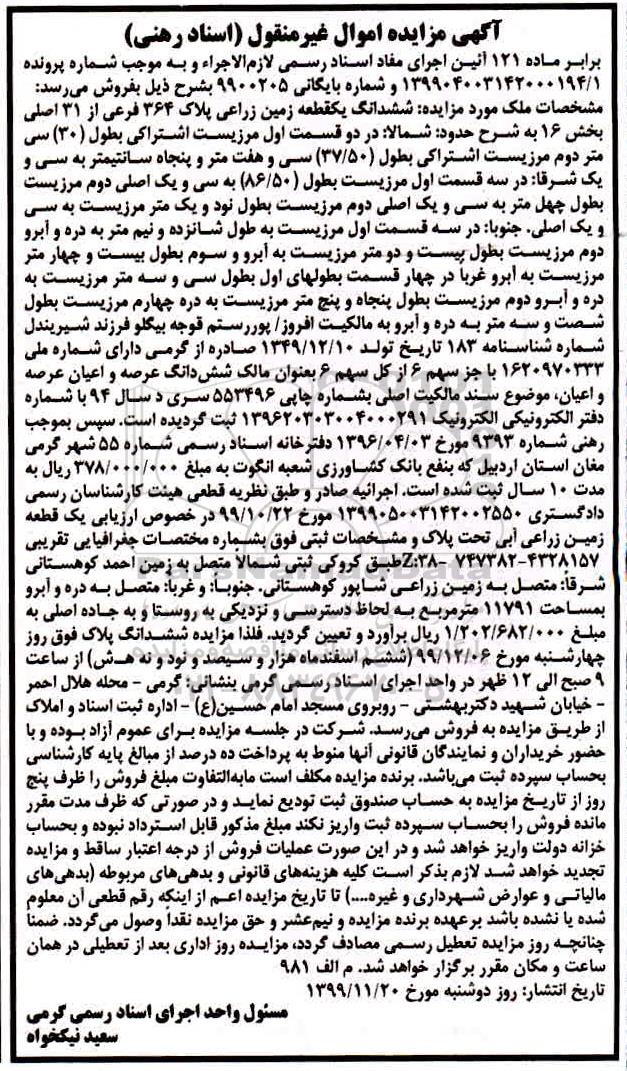 آگهی مزایده اموال غیرمنقول (اسناد رهنی)
برابر ماده ۱۲۱ آئین اجرای مفاد اسناد رسمی لازم‌الاجراء و به موجب شماره پرونده
۱۳۹۹۰۴۰۰۳۱۴۲۰۰۰۱۹۴/۱ و شماره بایگانی ۹۹۰۰۲۰۵ بشرح ذیل بفروش می‌رسد:
مشخصات ملک مورد مزایده: ششدانگ یکقطعه زمین زراعی پلاک ۳۶۴ فرعی از ۳۱ اصلی
بخش ۱۶ به شرح حدود: شمالا: در دو قسمت اول مرزیست اشتراکی بطول (۳۰) سی
متر دوم مرزیست اشتراکی بطول (۳۷/۵۰) سی و هفت متر و پنجاه سانتیمتر به سی و
یک شرقا: در سه قسمت اول مرزیست بطول (۸۶/۵۰) به سی و یک اصلی دوم مرزیست
بطول چهل متر به سی و یک اصلی دوم مرزیست بطول نود و یک متر مرزیست به سی
و یک اصلی. جنوبا: در سه قسمت اول مرزیست به طول شانزده و نیم متر به دره و آبرو
دوم مرزیست بطول بیست و دو متر مرزیست به آبرو و سوم بطول بیست و چهار متر
مرزیست به آبرو غربا در چهار قسمت بطولهای اول بطول سی و سه متر مرزیست به
دره و آبرو دوم مرزیست بطول پنجاه و پنج متر مرزیست به دره چهارم مرزیست بطول
شصت و سه متر به دره و آبرو به مالکیت افروز/ پوررستم قوجه بیگلو فرزند شیریندل
شماره شناسنامه ۱۸۳ تاریخ تولد ۱۳۴۹/۱۲/۱۰ صادره از گرمی دارای شماره ملی
۱۶۲۰۹۷۰۳۳۳ با جز سهم ۶ از کل سهم ۶ بعنوان مالک شش‌دانگ عرصه و اعیان عرصه
و اعیان، موضوع سند مالکیت اصلی بشماره چاپی ۵۵۳۴۹۶ سری د سال ۹۴ با شماره
دفتر الکترونیکی الکترونیک ۱۳۹۶۲۰۳۰۳۰۰۴۰۰۰۲۹۱ ثبت گردیده است. سپس بموجب
رهنی شماره ۹۳۹۳ مورخ ۱۳۹۶/۰۴/۰۳ دفترخانه اسناد رسمی شماره ۵۵ شهر گرمی
مغان استان اردبیل که بنفع بانک کشاورزی شعبه انگوت به مبلغ ۳۷۸/۰۰۰/۰۰۰ ریال به
مدت ۱۰ سال ثبت شده است. اجرائیه صادر و طبق نظریه قطعی هیئت کارشناسان رسمی
دادگستری ۱۳۹۹۰۵۰۰۳۱۴۲۰۰۲۵۵۰ مورخ ۹۹/۱۰/۲۲ در خصوص ارزیابی یک قطعه
زمین زراعی آبی تحت پلاک و مشخصات ثبتی فوق بشماره مختصات جغرافیایی تقریبی
۴۳۲۸۱۵۷-۷۴۷۳۸۲ -Z:۳۸ طبق کروکی ثبتی شمالا متصل به زمین احمد کوهستانی
شرقا: متصل به زمین زراعی شاپور کوهستانی. جنوبا: و غربا: متصل به دره و آبرو
بمساحت ۱۱۷۹۱ مترمربع به لحاظ دسترسی و نزدیکی به روستا و به جاده اصلی به
مبلغ ۱/۲۰۲/۶۸۲/۰۰۰ ریال برآورد و تعیین گردید. فلذا مزایده ششدانگ پلاک فوق روز
چهارشنبه مورخ ۹۹/۱۲/۰۶ (ششم اسفندماه هزار و سیصد و نود و نه ه‌ش) از ساعت
۹ صبح الی ۱۲ ظهر در واحد اجرای اسناد رسمی گرمی بنشانی: گرمی - محله هلال احمر
- خیابان شهید دکتربهشتی - روبروی مسجد امام حسین(ع) - اداره ثبت اسناد و املاک
از طریق مزایده به فروش می‌رسد. شرکت در جلسه مزایده برای عموم آزاد بوده و با
حضور خریداران و نمایندگان قانونی آنها منوط به پرداخت ده درصد از مبالغ پایه کارشناسی
بحساب سپرده ثبت می‌باشد. برنده مزایده مکلف است مابه‌التفاوت مبلغ فروش را ظرف پنج
روز از تاریخ مزایده به حساب صندوق ثبت تودیع نماید و در صورتی که ظرف مدت مقرر
مانده فروش را بحساب سپرده ثبت واریز نکند مبلغ مذکور قابل استرداد نبوده و بحساب
خزانه دولت واریز خواهد شد و در این صورت عملیات فروش از درجه اعتبار ساقط و مزایده
تجدید خواهد شد لازم بذکر است کلیه هزینه‌های قانونی و بدهی‌های مربوطه (بدهی‌های
مالیاتی و عوارض شهرداری و غیره....) تا تاریخ مزایده اعم از اینکه رقم قطعی آن معلوم
شده یا نشده باشد برعهده برنده مزایده و نیم‌عشر و حق مزایده نقدا وصول می‌گردد. ضمنا
چنانچه روز مزایده تعطیل رسمی مصادف گردد، مزایده روز اداری بعد از تعطیلی در همان
ساعت و مکان مقرر برگزار خواهد شد. م الف ۹۸۱
تاریخ انتشار: روز دوشنبه مورخ ۱۳۹۹/۱۱/۲۰
مسئول واحد اجرای اسناد رسمی گرمی
سعید نیکخواه